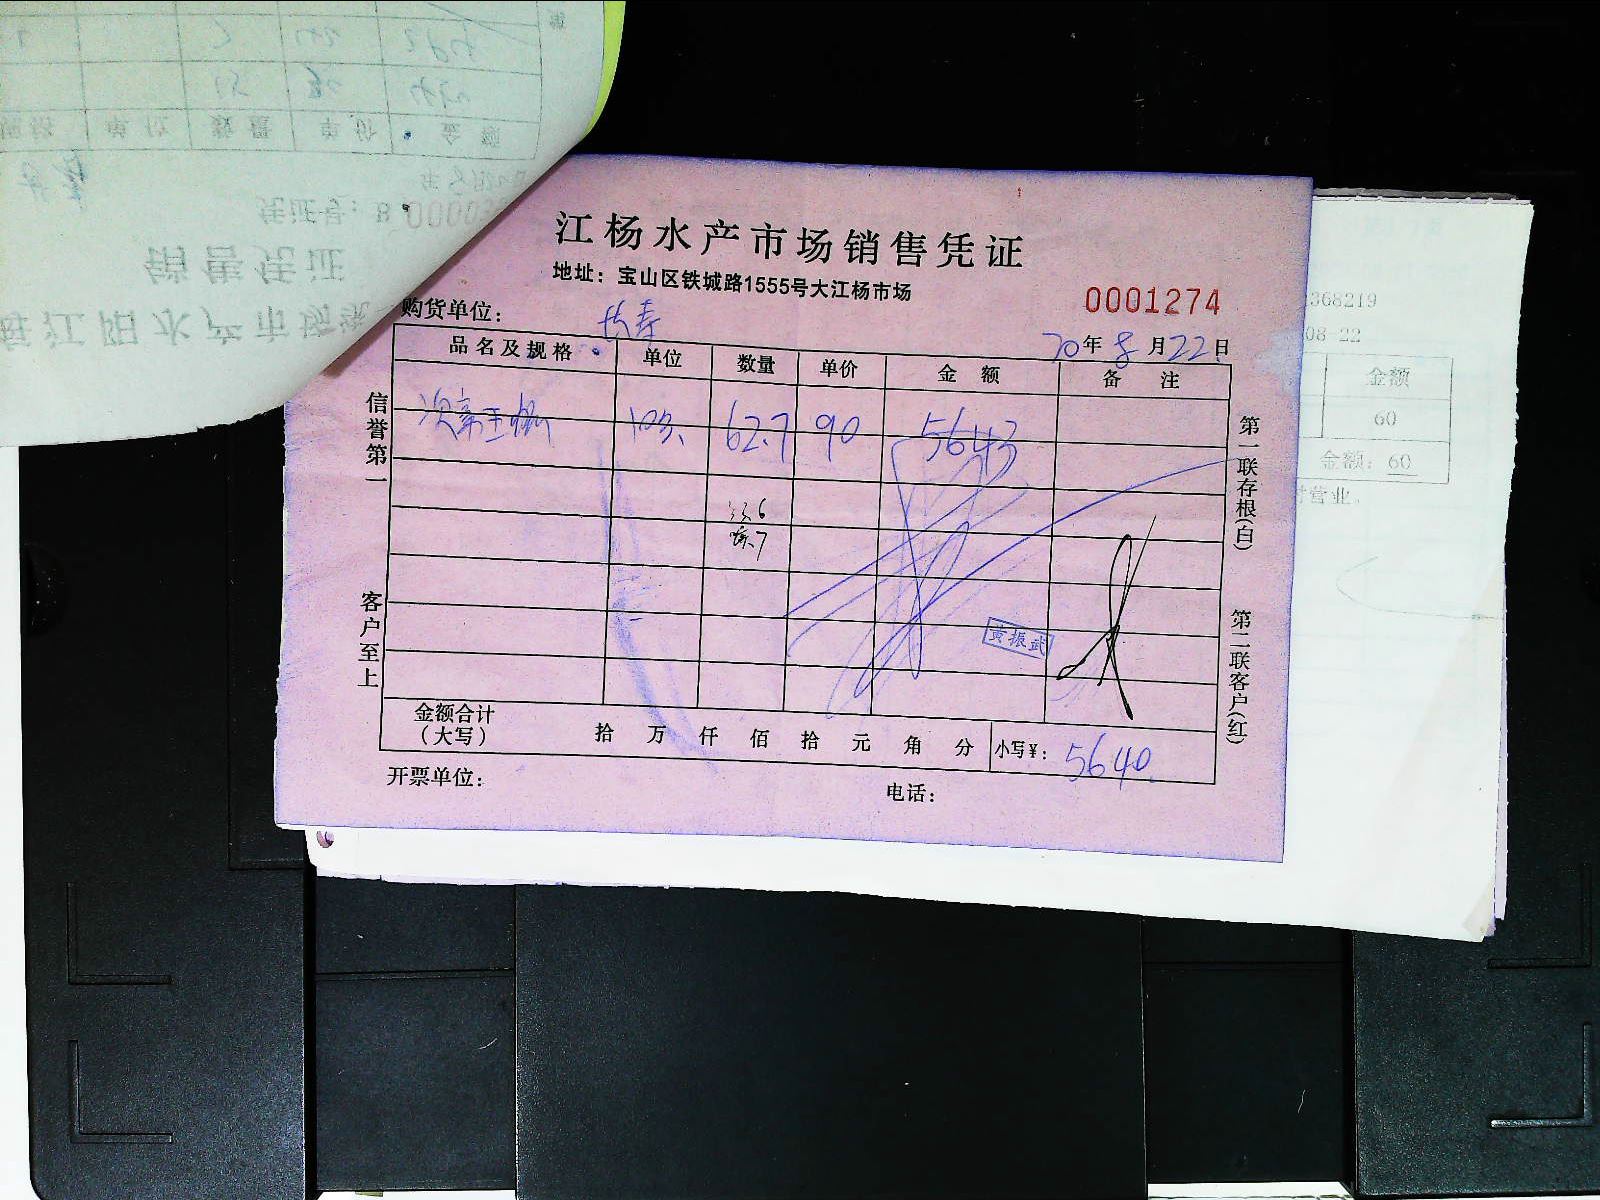 江杨水产市场销售凭证
地址：宝山区铁城路1555号大江杨市场
0001274
购货单位：长寿
20年8月22日
品名及规格 单位 数量 单价 金额 备注
62.7 90 5643
6
7
黄振武
金额合计（大写） 拾 万 仟 佰 拾 元 角 分 小写¥：5640
开票单位： 电话：
信誉第一
客户至上
第一联存根(白)
第二联客户(红)
368219
08-22
金额
60
金额：60
营业
单位 数量 单价 金额
15
凭证号：B 0000
销售凭证
江阳水产市场